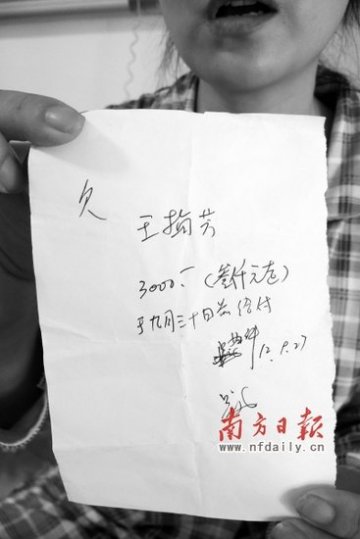 欠
王梅芳
3000.- (叁仟元)
于九月三十日前给付
12.9.27
南方日报
www.nfdaily.cn